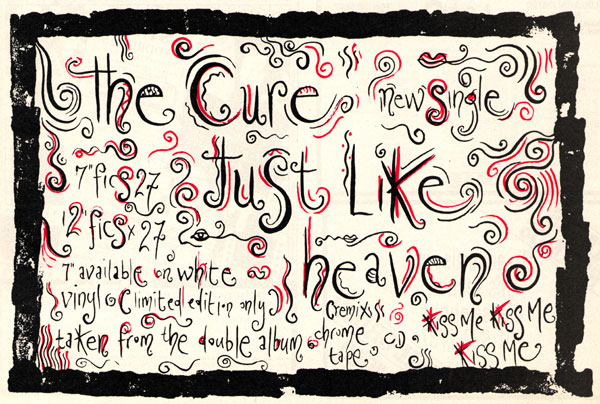 the Cure new single
Just Like
heaven
7" fics 27
12" ficsx 27
7" available on white
vinyl (limited edition only)
taken from the double album
Cremixs
chrome
tape
CD
Kiss Me Kiss Me
Kiss Me